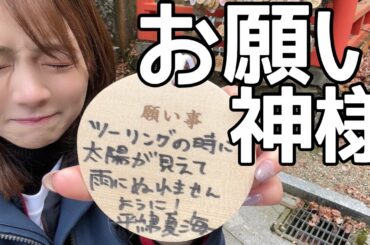 お願い
神様
願い事
ツーリングの時に
太陽が見えて
雨にぬれません
ように!
平嶋夏海